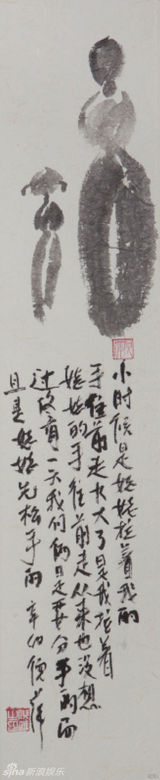 小时候是姥姥拉着我的
手往前走长大了是我拉着
姥姥的手往前走从来也没想
过没有一天我们俩是要分手的而
且是姥姥先松手的
sina新浪娱乐